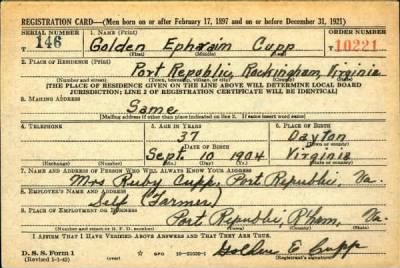 REGISTRATION CARD—(Men born on or after February 17, 1897 and on or before December 31, 1921)
SERIAL NUMBER 1. NAME (Print) ORDER NUMBER
146 Golden Ephraim Cupp 10221
(First) (Middle) (Last)
2. PLACE OF RESIDENCE (Print)
Port Republic, Rockingham, Virginia
(Number and street) (Town, township, village, or city) (County) (State)
[THE PLACE OF RESIDENCE GIVEN ON THE LINE ABOVE WILL DETERMINE LOCAL BOARD
JURISDICTION; LINE 2 OF REGISTRATION CERTIFICATE WILL BE IDENTICAL]
3. MAILING ADDRESS
Same
[Mailing address if other than place indicated on line 2. If same insert word same]
4. TELEPHONE 5. AGE IN YEARS 6. PLACE OF BIRTH
37 Dayton
DATE OF BIRTH (Town or county)
Sept. 10 1904 Virginia
(Exchange) (Number) (Mo.) (Day) (Yr.) (State or country)
7. NAME AND ADDRESS OF PERSON WHO WILL ALWAYS KNOW YOUR ADDRESS
Mrs Ruby Cupp, Port Republic, Va.
8. EMPLOYER'S NAME AND ADDRESS
Self (Farmer)
9. PLACE OF EMPLOYMENT OR BUSINESS
Port Republic, R'ham, Va.
(Number and street or R. F. D. number) (Town) (County) (State)
I AFFIRM THAT I HAVE VERIFIED ABOVE ANSWERS AND THAT THEY ARE TRUE.
D. S. S. Form 1 GPO Golden E Cupp
(Registrant's signature)